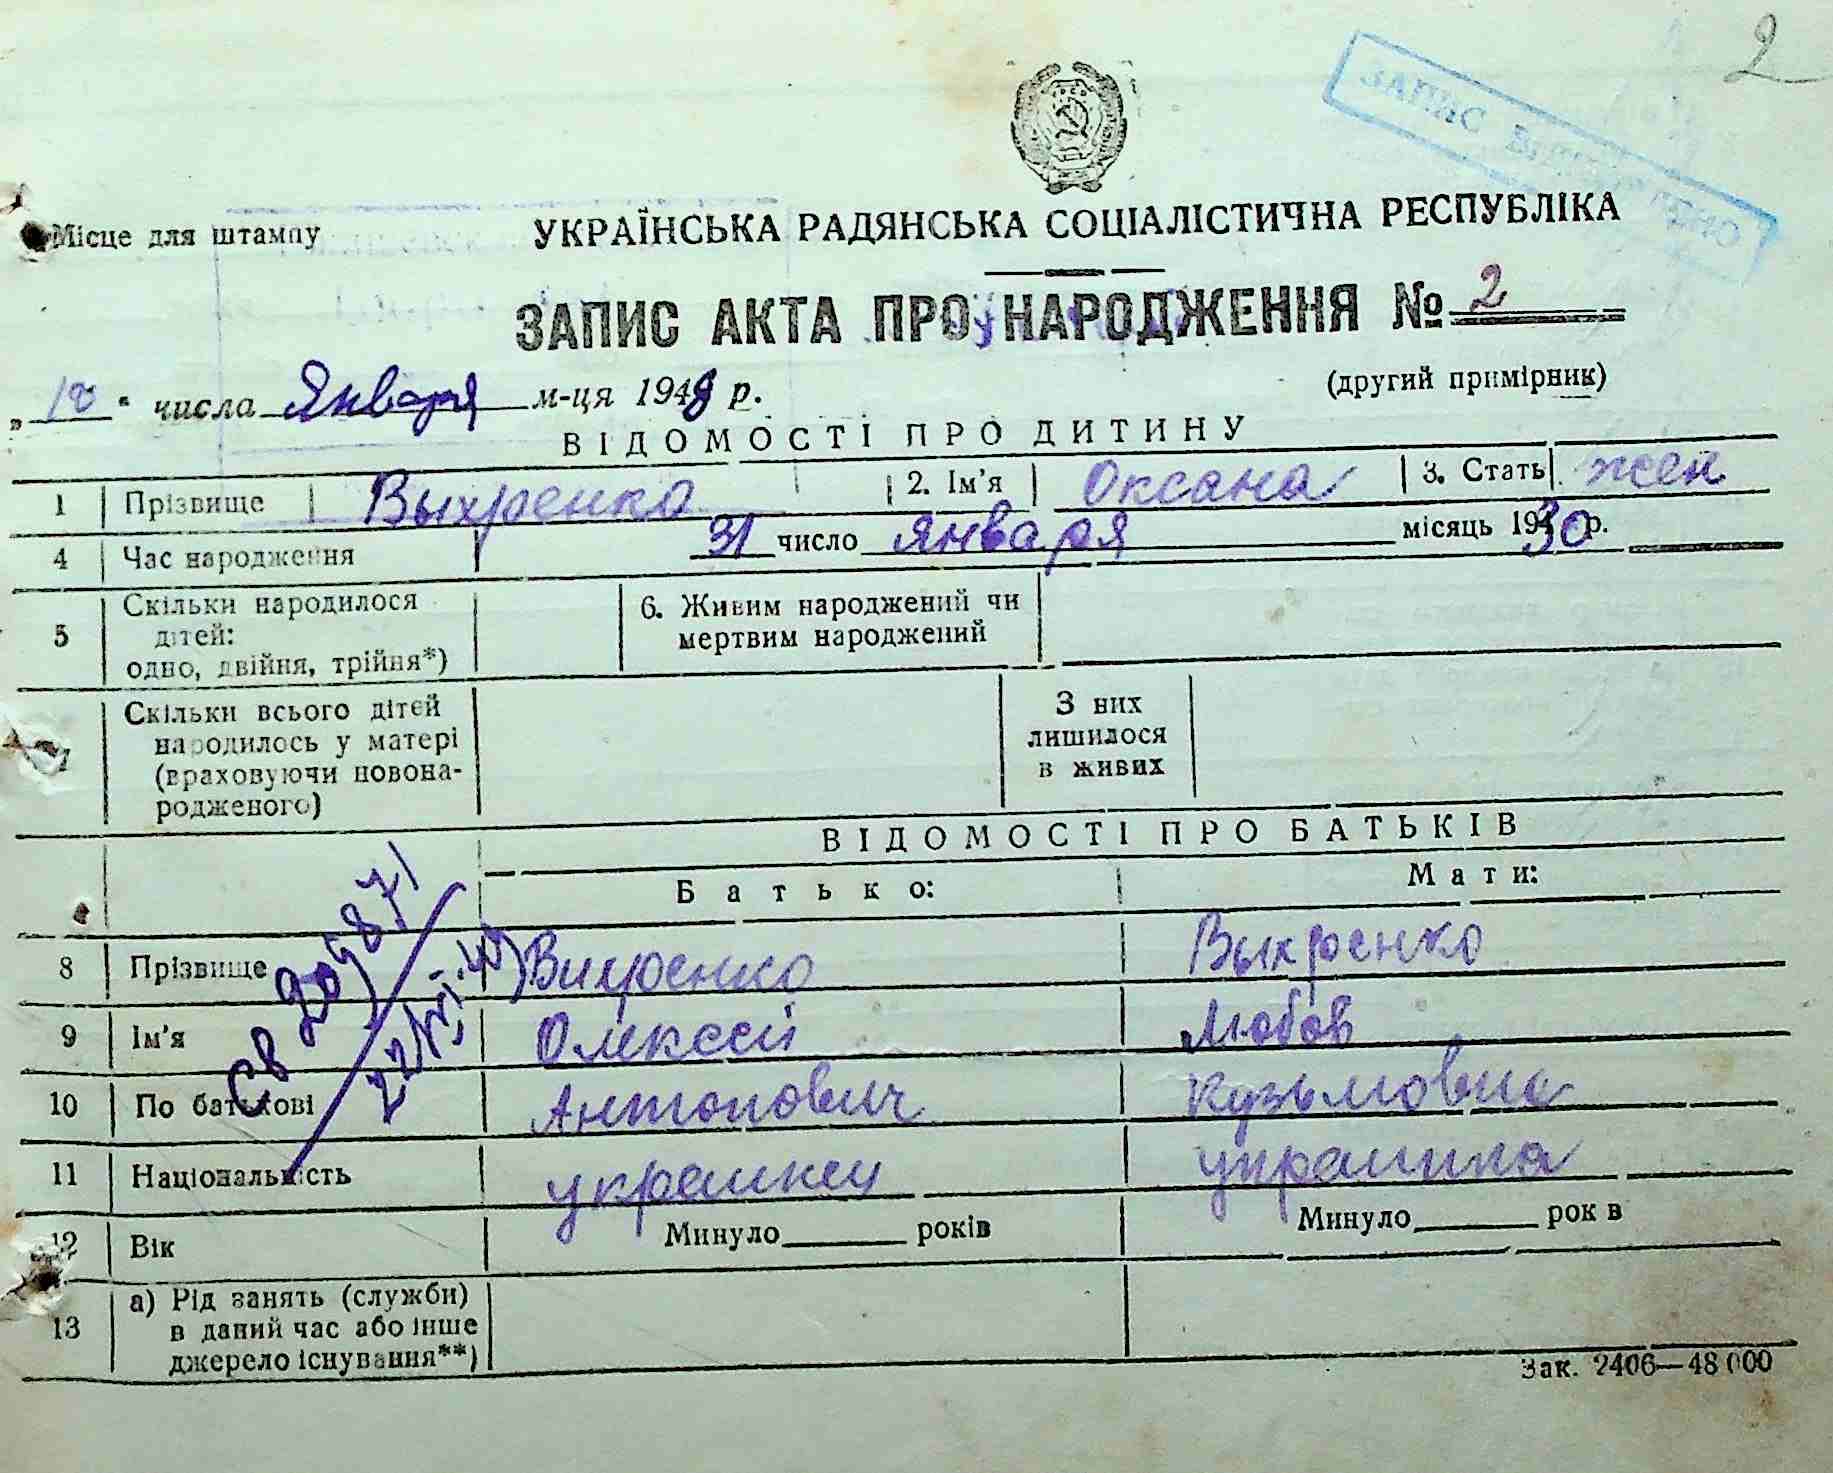 2
ЗАПИС ВІДНОВЛЕНО
Місце для штампу
УКРАЇНСЬКА РАДЯНСЬКА СОЦІАЛІСТИЧНА РЕСПУБЛІКА
ЗАПИС АКТА ПРО НАРОДЖЕННЯ № 2
(другий примірник)
числа Января м-ця 1948 р.
ВІДОМОСТІ ПРО ДИТИНУ
1 Прізвище Выхренко 2. Ім'я Оксана 3. Стать жен
4 Час народження 31 число января місяць 1930 р.
5 Скільки народилося дітей: одно, двійня, трійня*)
6. Живим народжений чи мертвим народжений
7 Скільки всього дітей народилось у матері (враховуючи новонародженого)
З них лишилося в живих
ВІДОМОСТІ ПРО БАТЬКІВ
Батько: Мати:
8 Прізвище Вихренко Выхренко
9 Ім'я Олексей Любов
10 По батькові Антонович Кузьмовна
11 Національність украинец украинка
12 Вік Минуло років Минуло рок в
13 а) Рід занять (служби) в даний час або інше джерело існування**)
Зак. 2406—48 000